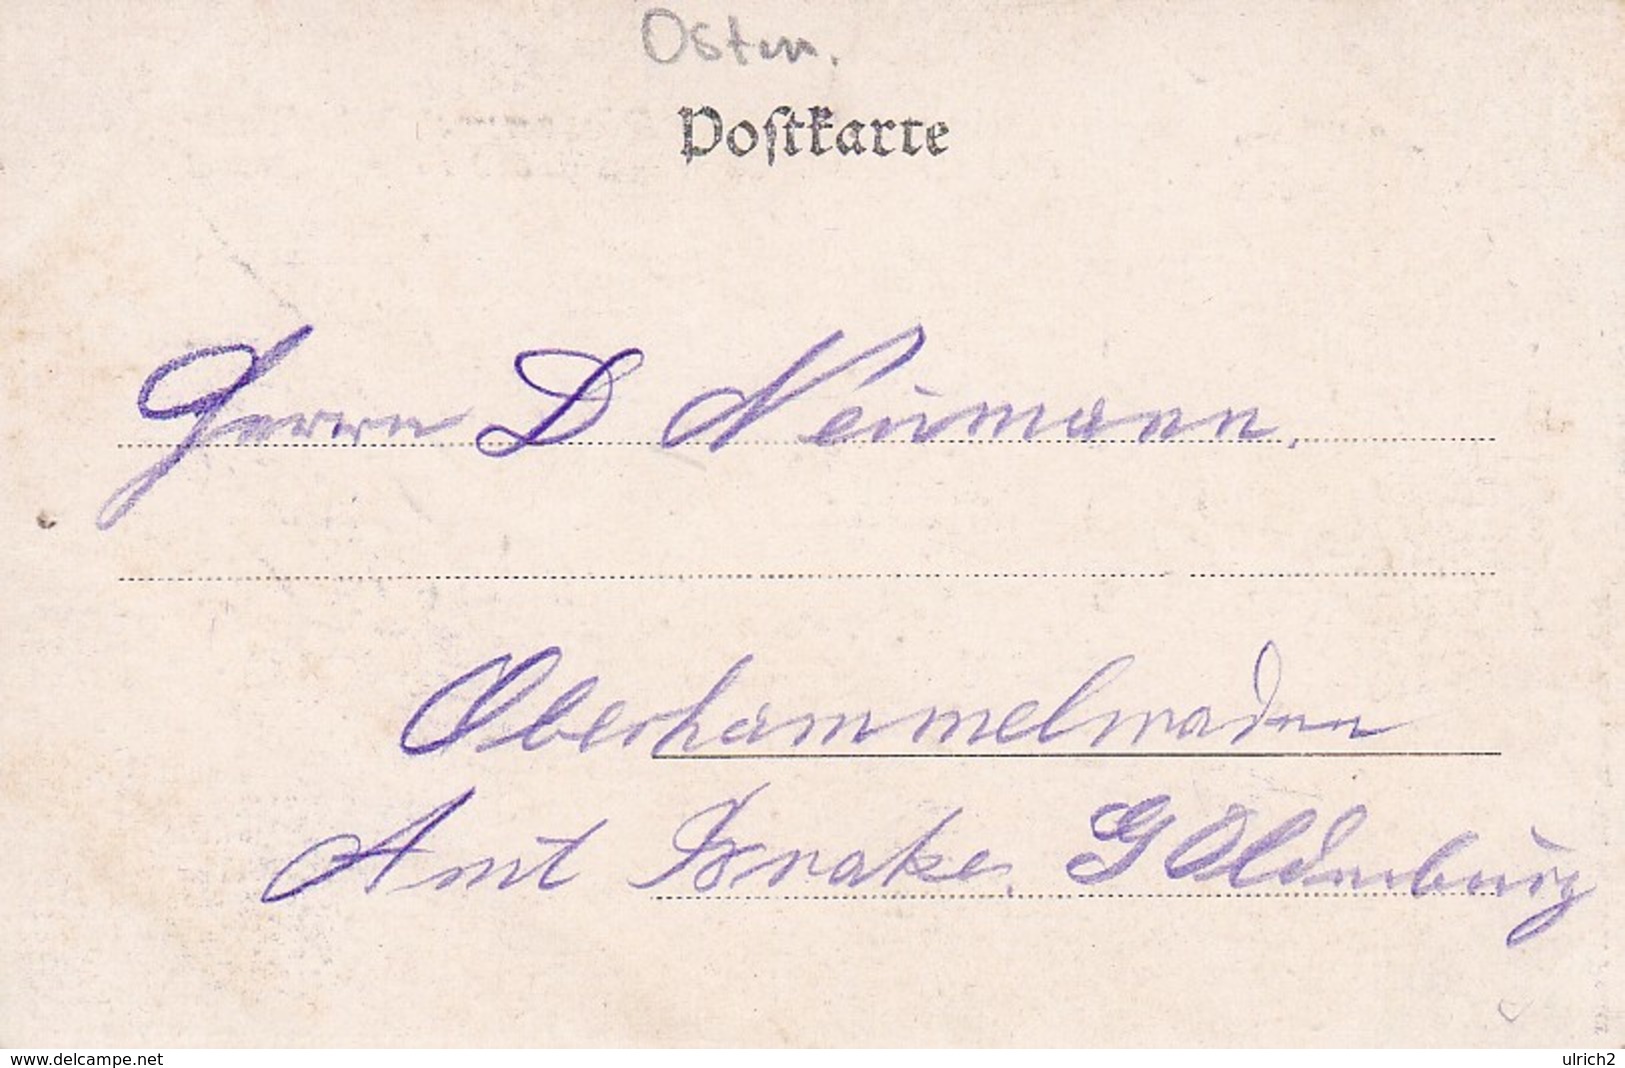 Osten.
Postkarte
Herrn D Neumann.
Oberhammelwarden
Amt Brake. G Oldenburg
www.delcampe.net
ulrich2